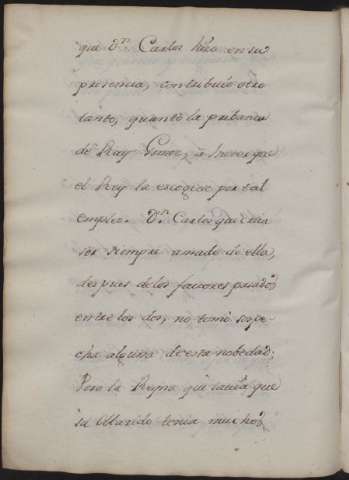 que Dn. Carlos hizo en su
presencia, contribuió otro
tanto, quanto la pribanza
de Ruy Gomez, a hacer que
el Rey la escogiese por tal
empleo. Dn. Carlos que
ser siempre amado de ella,
despues de los favores pasados
entre los dos, no tomó sospe-
cha alguna de esta nobedad;
Pero la Reyna que savia que
su Marido tenia muchos